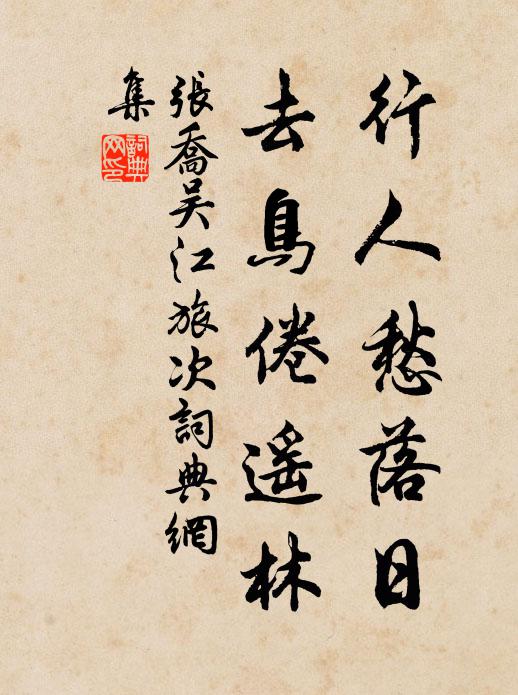 行人愁落日
去鳥倦遥林
張喬吳江旅次詞典網
集
詞典
网印